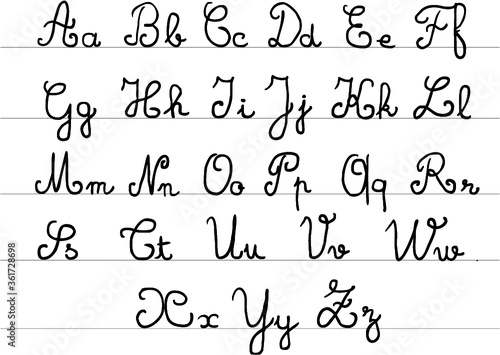 Aa Bb Cc Dd Ee Ff
Gg Hh Ii Jj Kk Ll
Mm Nn Oo Pp Qq Rr
Ss Tt Uu Vv Ww
Xx Yy Zz
Adobe Stock | #361728698